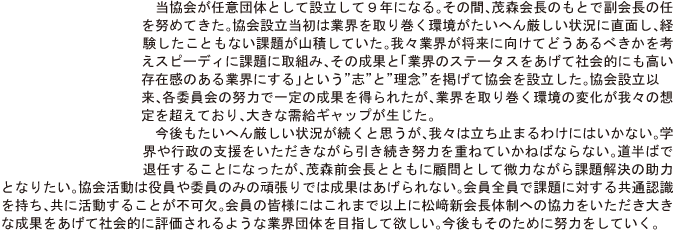 当協会が任意団体として設立して９年になる。その間、茂森会長のもとで副会長の任
を努めてきた。協会設立当初は業界を取り巻く環境がたいへん厳しい状況に直面し、経
験したこともない課題が山積していた。我々業界が将来に向けてどうあるべきかを考
えスピーディに課題に取組み、その成果と「業界のステータスをあげて社会的にも高い
存在感のある業界にする」という”志”と”理念”を掲げて協会を設立した。協会設立以
来、各委員会の努力で一定の成果を得られたが、業界を取り巻く環境の変化が我々の想
定を超えており、大きな需給ギャップが生じた。
今後もたいへん厳しい状況が続くと思うが、我々は立ち止まるわけにはいかない。学
界や行政の支援をいただきながら引き続き努力を重ねていかねばならない。道半ばで
退任することになったが、茂森前会長とともに顧問として微力ながら課題解決の助力
となりたい。協会活動は役員や委員のみの頑張りでは成果はあげられない。会員全員で課題に対する共通認識
を持ち、共に活動することが不可欠。会員の皆様にはこれまで以上に松﨑新会長体制への協力をいただき大き
な成果をあげて社会的に評価されるような業界団体を目指して欲しい。今後もそのために努力をしていく。